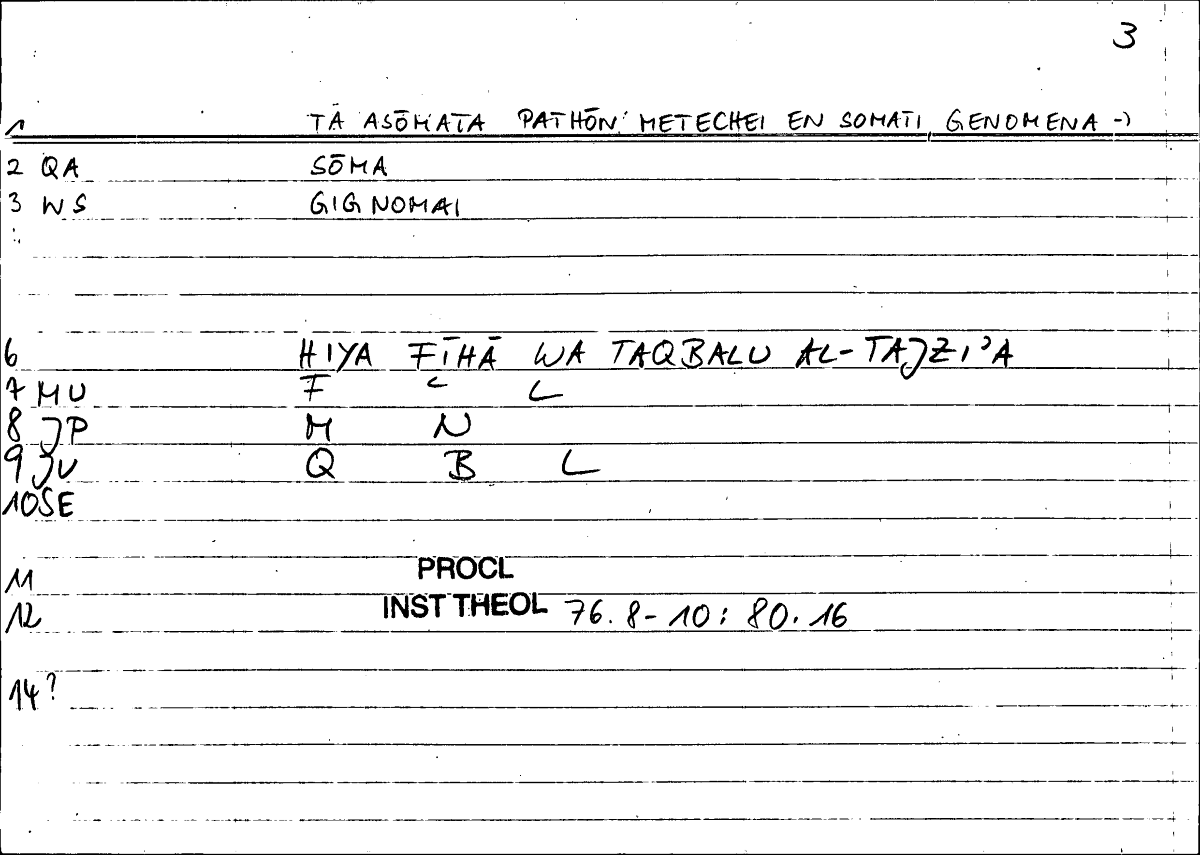 3
1 TĀ ASŌMATA PATHŌN METECHEI EN SOMATI GENOMENA →
2 QA SŌMA
3 WS GIGNOMAI
6 HIYA FĪHĀ WA TAQBALU AL-TAJZI'A
7 MU F ʿ L
8 JP M N
9 JU Q B L
10 SE
11 PROCL
12 INST THEOL 76.8-10: 80.16
14?